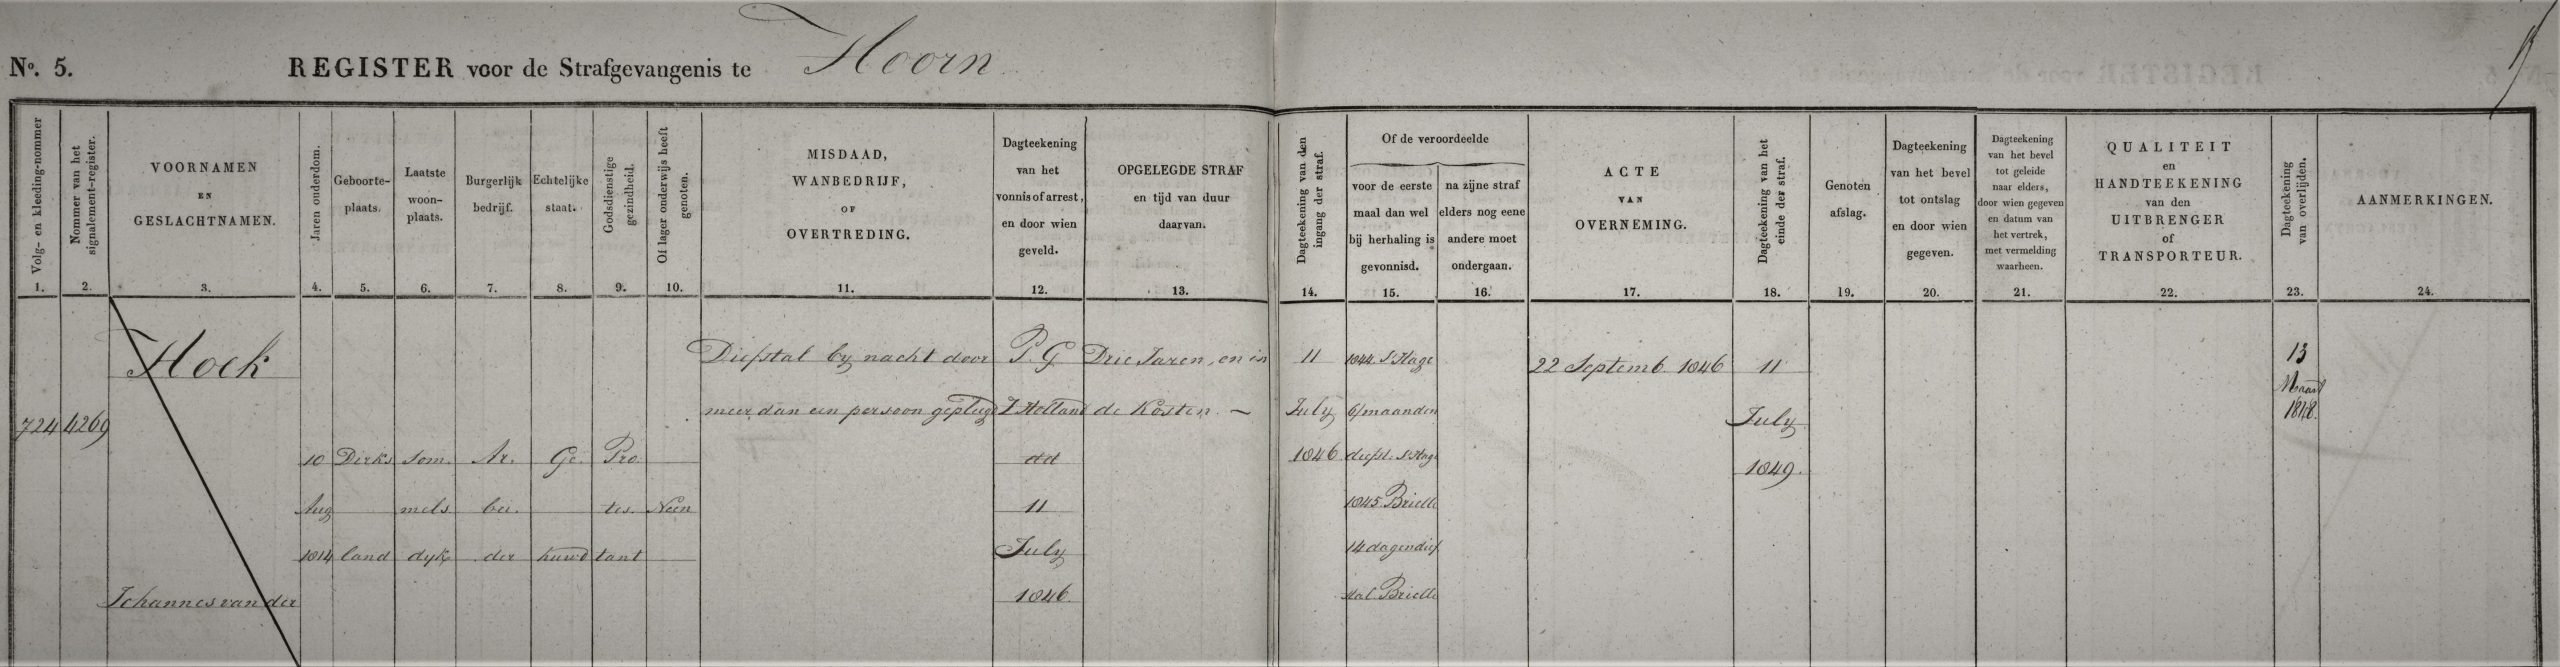 No. 5.
REGISTER voor de Strafgevangenis te Hoorn
Volg- en kleeding-nommer
1.
Nommer van het
signalement-register.
2.
VOORNAMEN
EN
GESLACHTNAMEN.
3.
Jaren ouderdom.
4.
Geboorte-
plaats.
5.
Laatste
woon-
plaats.
6.
Burgerlijk
bedrijf.
7.
Echtelijke
staat.
8.
Godsdienstige
gezindheid.
9.
Of lager onderwijs heeft
genoten.
10.
MISDAAD,
WANBEDRIJF,
OF
OVERTREDING.
11.
Dagteekening
van het
vonnis of arrest,
en door wien
geveld.
12.
OPGELEGDE STRAF
en tijd van duur
daarvan.
13.
Dagteekening van den
ingang der straf.
14.
Of de veroordeelde
voor de eerste
maal dan wel
bij herhaling is
gevonnisd.
15.
na zijne straf
elders nog eene
andere moet
ondergaan.
16.
ACTE
VAN
OVERNEMING.
17.
Dagteekening van het
einde der straf.
18.
Genoten
afslag.
19.
Dagteekening
van het bevel
tot ontslag
en door wien
gegeven.
20.
Dagteekening
van het bevel
tot geleide
naar elders,
door wien gegeven
en datum van
het vertrek,
met vermelding
waarheen.
21.
QUALITEIT
en
HANDTEEKENING
van den
UITBRENGER
of
TRANSPORTEUR.
22.
Dagteekening
van overlijden.
23.
AANMERKINGEN.
24.
724
4269
Hoek
Johannes van der
10
Aug
1814
Dirks
land
Som.
mels.
dyk
Ar.
bei.
der
Ge.
huwd
Pro.
tes.
tant
Neen
Diefstal by nacht door
meer dan een persoon gepleegd
P. G
Z Holland
dd
11
July
1846.
Drie Jaren, en in
de Kosten. —
11
July
1846.
1844. S'Hage
6/maanden
diefst. S'Hage
1845. Brielle
14 dagen dief
stal. Brielle
22 Septemb. 1846
11
July
1849.
13
Maart
1848.